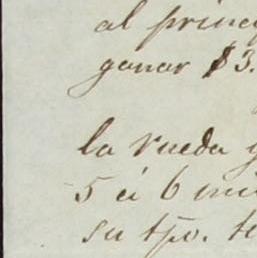 al princ
ganar $3.
la rueda q
5 á 6 mi
su tpo. t